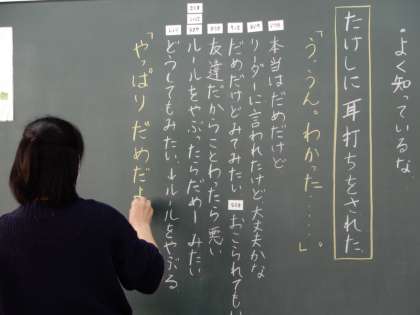 よく知っているな。
たけしに耳打ちをされた
「う、うん。わかった……。」
本当はだめだけど
リーダーに言われたけど大丈夫かな
だめだけどみてみたい
おこられてもい
友達だからことわったら悪い
ルールをやぶったらだめーみたい
どうしてもみたい。→ルールをやぶる
「やっぱりだめだよ